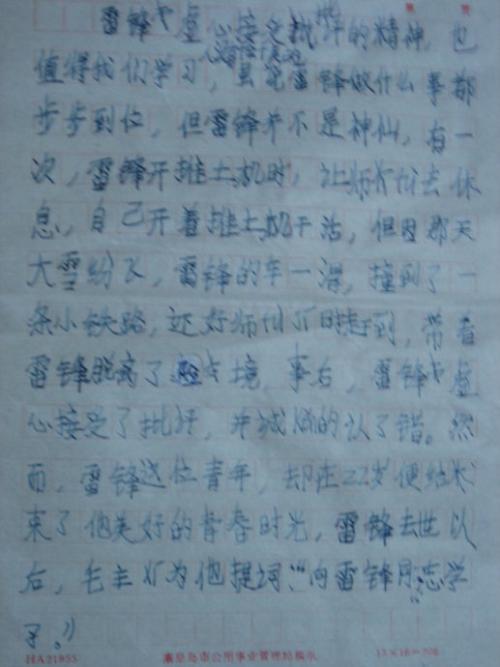 雷锋虚心接受批评的精神,也
值得我们学习,虽然雷锋做什么事都
步步到位,但雷锋并不是神仙,有一
次,雷锋开推土机时,让师傅去休
息,自己开着推土机干活,但因那天
大雪纷飞,雷锋的车一滑,撞到了一
条小铁路,还好师傅及时赶到,带着
雷锋脱离了境,事后,雷锋虚
心接受了批评,并诚恳的认了错。然
而,雷锋这位青年,却在22岁便结
束了他美好的青春时光,雷锋去世以
后,毛主席为他提词:“向雷锋同志学
习。”
HA21955 秦皇岛市公用事业管理站揭示 15×16=